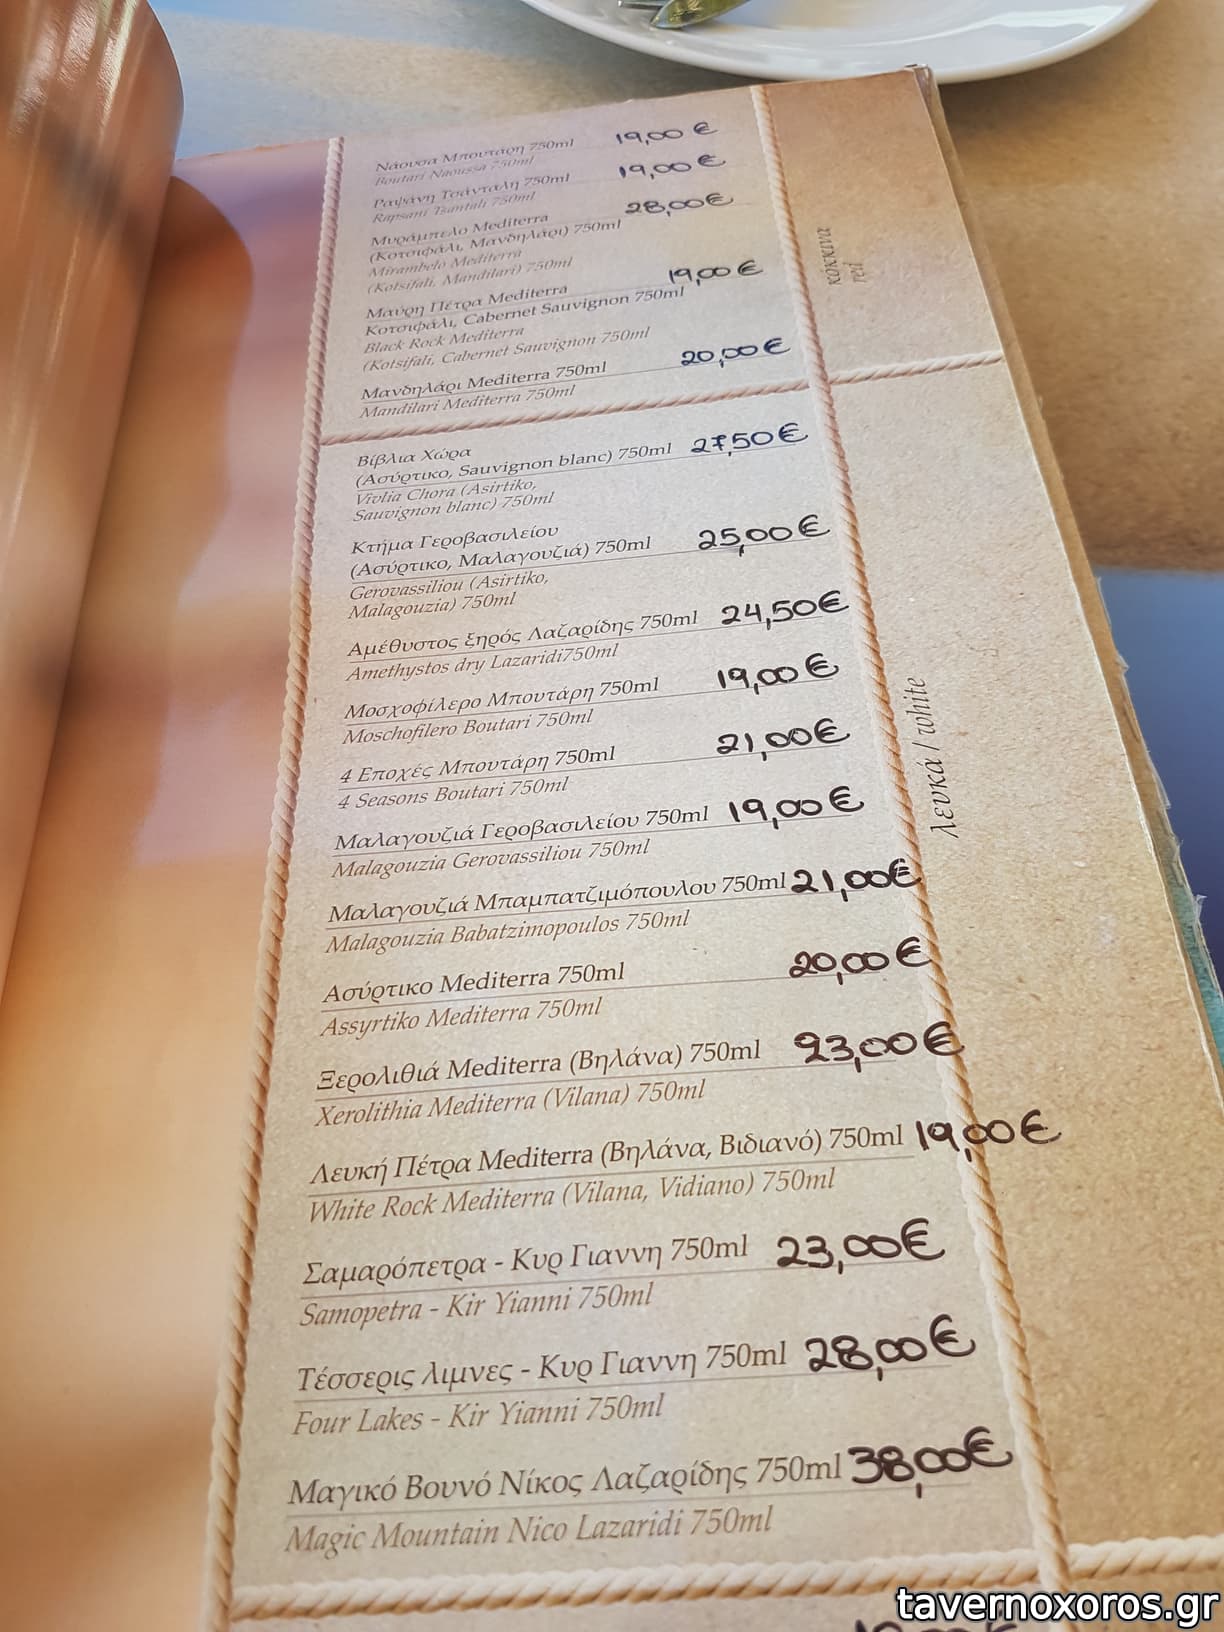 Νάουσα Μπουτάρη 750ml 19,00 €
Boutari Naoussa 750ml
Ραψάνη Τσάνταλη 750ml 19,00 €
Rapsani Tsantali 750ml
Μυράμπελο Mediterra 28,00 €
(Κοτσιφάλι, Μανδηλάρι) 750ml
Mirambelo Mediterra
(Kotsifali, Mandilari) 750ml
Μαύρη Πέτρα Mediterra 19,00 €
Κοτσιφάλι, Cabernet Sauvignon 750ml
Black Rock Mediterra
(Kotsifali, Cabernet Sauvignon 750ml
Μανδηλάρι Mediterra 750ml 20,00 €
Mandilari Mediterra 750ml
κόκκινα
red
Βίβλια Χώρα
(Ασύρτικο, Sauvignon blanc) 750ml 27,50 €
Vivlia Chora (Asirtiko,
Sauvignon blanc) 750ml
Κτήμα Γεροβασιλείου
(Ασύρτικο, Μαλαγουζιά) 750ml 25,00 €
Gerovassiliou (Asirtiko,
Malagouzia) 750ml
Αμέθυστος ξηρός Λαζαρίδης 750ml 24,50 €
Amethystos dry Lazaridi750ml
Μοσχοφίλερο Μπουτάρη 750ml 19,00 €
Moschofilero Boutari 750ml
4 Εποχές Μπουτάρη 750ml 21,00 €
4 Seasons Boutari 750ml
Μαλαγουζιά Γεροβασιλείου 750ml 19,00 €
Malagouzia Gerovassiliou 750ml
Μαλαγουζιά Μπαμπατζιμόπουλου 750ml 21,00 €
Malagouzia Babatzimopoulos 750ml
Ασύρτικο Mediterra 750ml 20,00 €
Assyrtiko Mediterra 750ml
Ξερολιθιά Mediterra (Βηλάνα) 750ml 23,00 €
Xerolithia Mediterra (Vilana) 750ml
Λευκή Πέτρα Mediterra (Βηλάνα, Βιδιανό) 750ml 19,00 €
White Rock Mediterra (Vilana, Vidiano) 750ml
Σαμαρόπετρα - Κυρ Γιαννη 750ml 23,00 €
Samopetra - Kir Yianni 750ml
Τέσσερις λιμνες - Κυρ Γιαννη 750ml 28,00 €
Four Lakes - Kir Yianni 750ml
Μαγικό Βουνό Νίκος Λαζαρίδης 750ml 38,00 €
Magic Mountain Nico Lazaridi 750ml
λευκά / white
tavernoxoros.gr